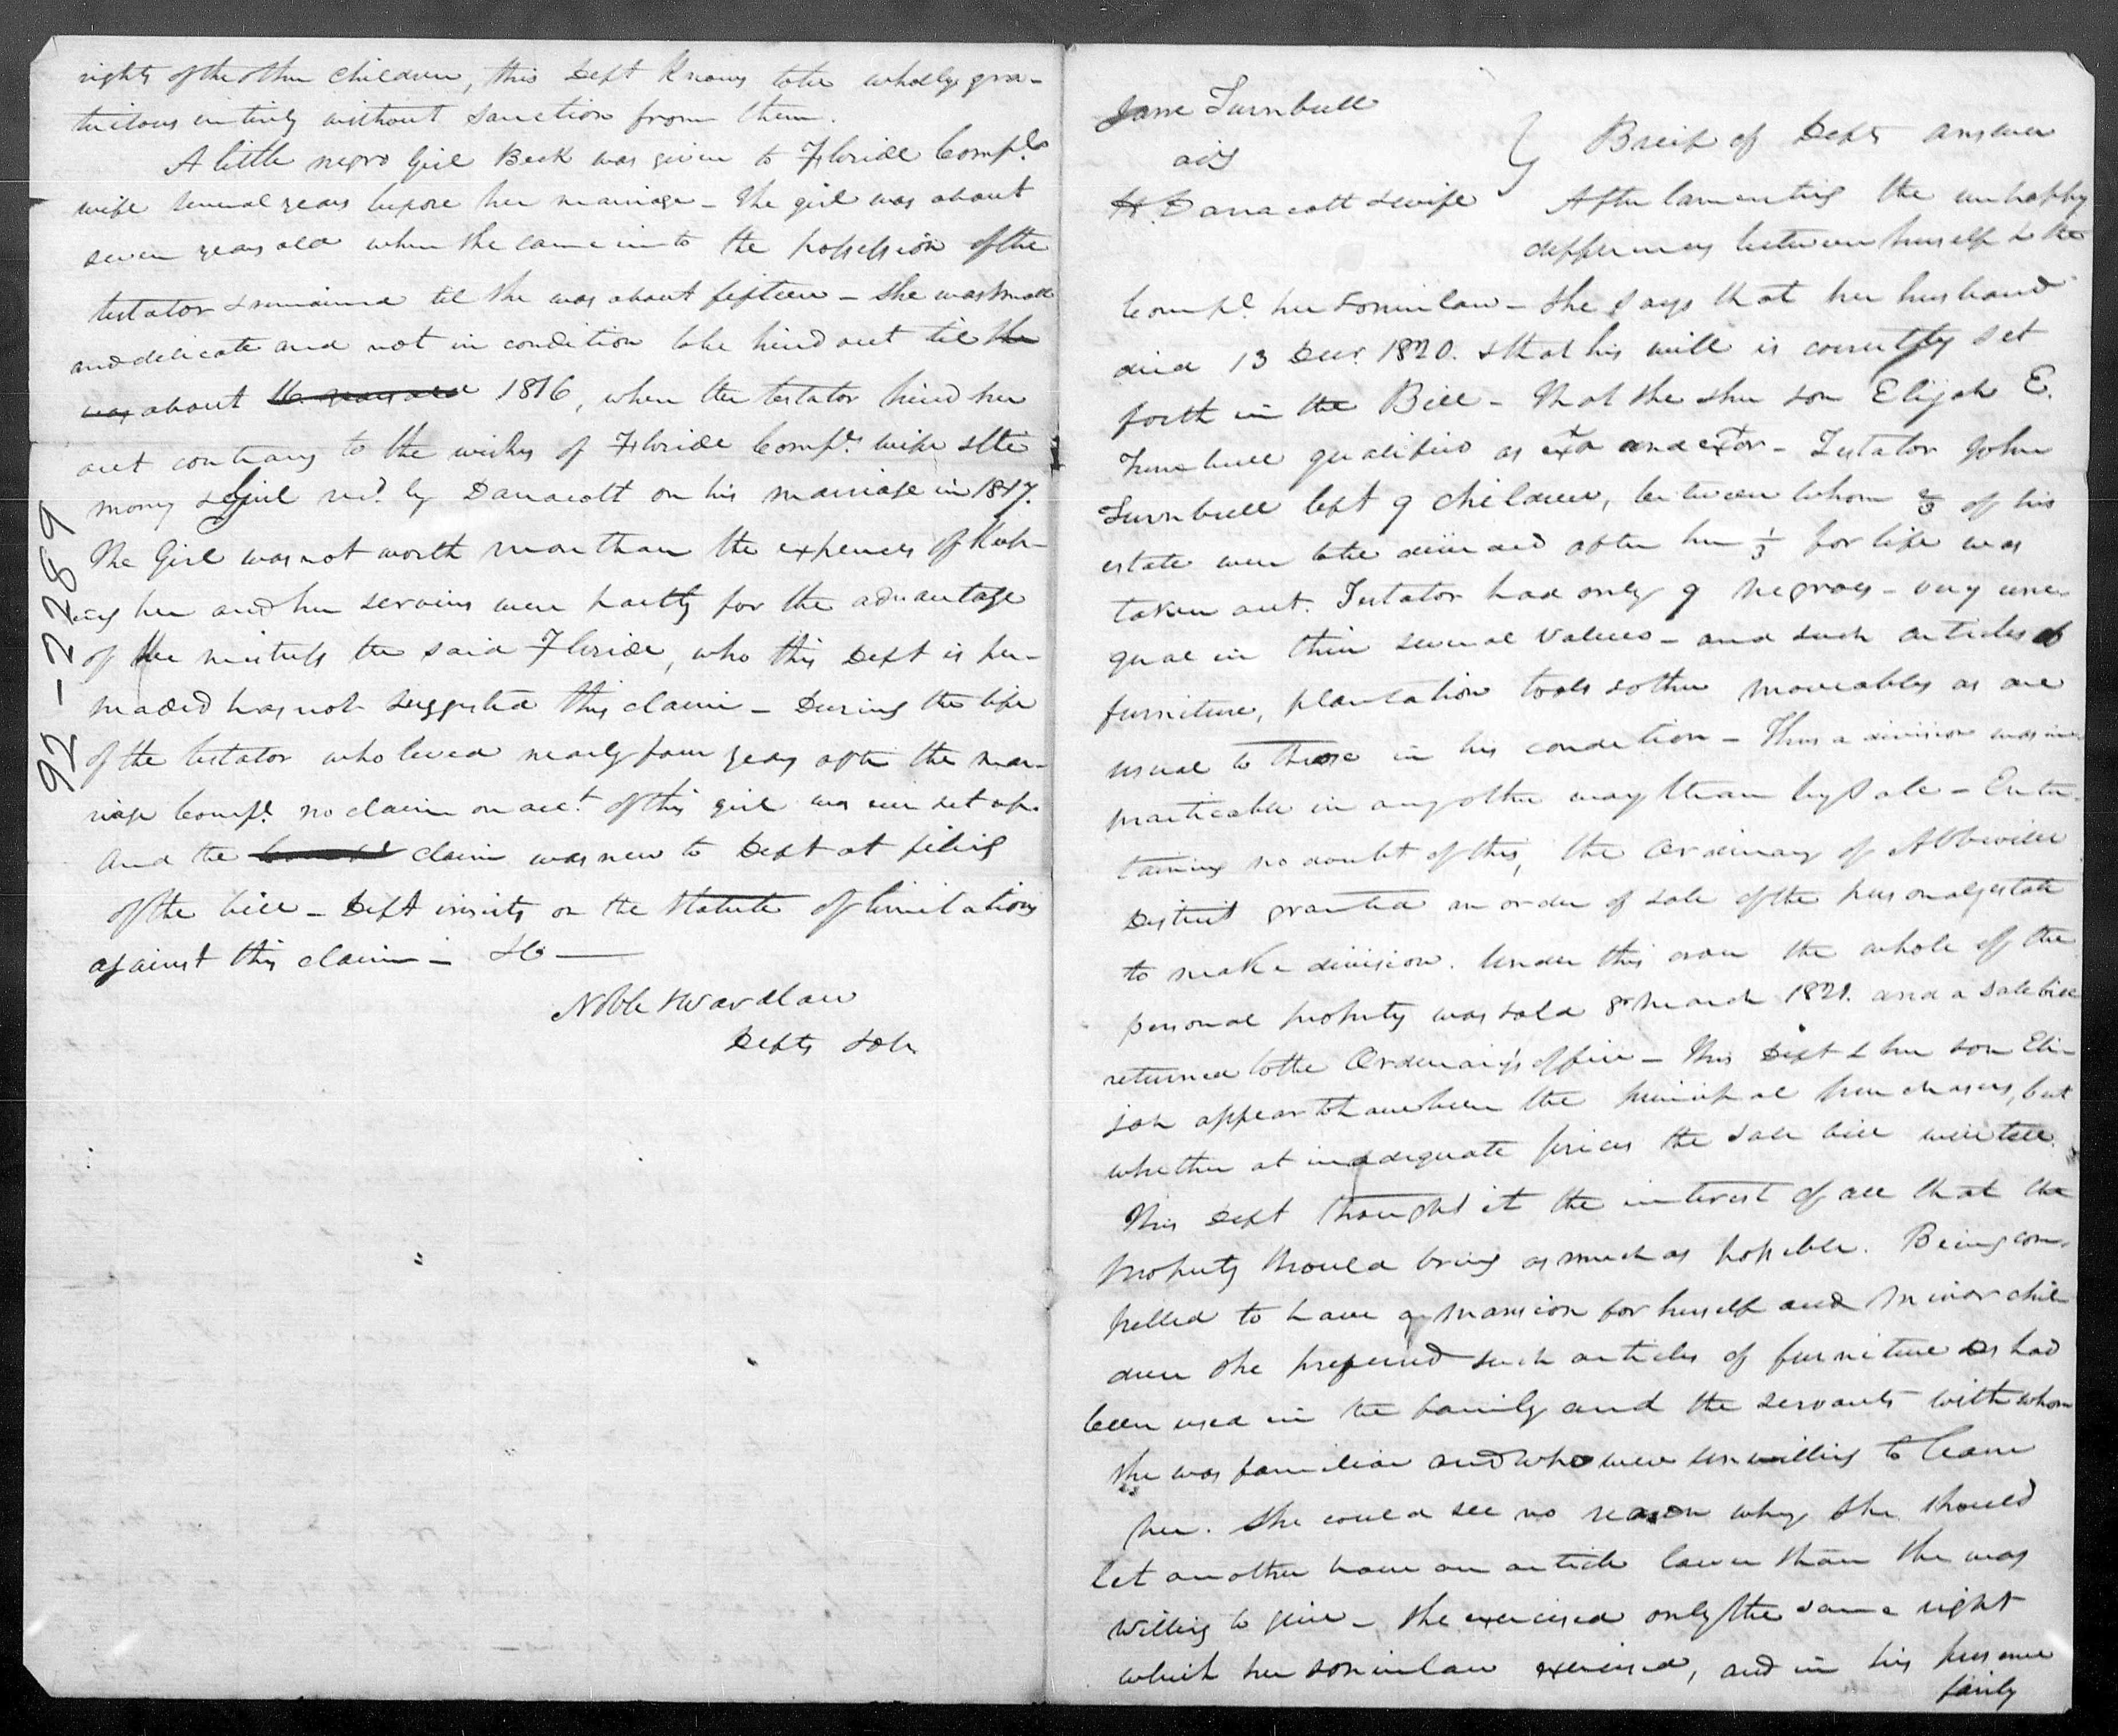 rights of the other children, this Deft knows to be wholly gra-
tuitous entirely without sanction from them.
A little negro girl Beck was given to Floride Compls
wife several years before her marriage - The girl was about
seven years old when she came into the possession of the
testator & remained til she was about fifteen - she was small
and delicate and not in condition to be hired out til she
was about 16 years old 1816, when the testator hired her
out contrary to the wishes of Floride Compls wife & the
money & girl recd. by Darracott on his marriage in 1817.
The Girl was not worth more than the expences of keep-
ing her and her services were partly for the advantage
of her mistress the said Floride, who this Deft is per-
suaded has not suggested this claim - During the life
of the testator who lived nearly four years after the mar-
riage Compl. no claim on acct. of this girl was ever set up.
And the claim was new to Deft at filing
of the bill - Deft insists on the Statute of limitations
against this claim - &c
Noble & Wardlaw
Defts Sols
92-2289
Jane Turnbull
ads
H. Darracott & wife
} Breif of Defts answer
After lamenting the unhappy
differences between herself & the
Compl. her soninlaw - she says that her husband
died 13 Decr. 1820. & that his will is correctly set
forth in the Bill - That she & her son Elijah E.
Turnbull qualified as extx and extor - Testator John
Turnbull left 9 children, between whom 2/3 of his
estate were to be divided after her 1/3 for life was
taken out. Testator had only 9 negroes - very une-
qual in their several values - and such articles of
furniture, plantation tools & other moveables as are
usual to those in his condition - Thus a division was im
practicable in any other way than by sale - Enter-
taining no doubt of this, the Ordinary of Abbeville
District granted an order of sale of the personal estate
to make division. Under this order the whole of the
personal property was sold 8 March 1821. and a sale bill
returned to the Ordinary's office - This Deft & her son Eli-
jah appear to have been the principal purchasers, but
whether at inadequate prices the sale bill will tell.
This Deft thought it the interest of all that the
property should bring as much as possible. Being com-
pelled to have a mansion for herself and minor chil
dren she preferred such articles of furniture as had
been used in the family and the servants with whom
she was familiar and who were unwilling to leave
her. She could see no reason why she should
let another have an article lower than she was
willing to give - she exercised only the same right
which her soninlaw exercised, and in his presence
fairly